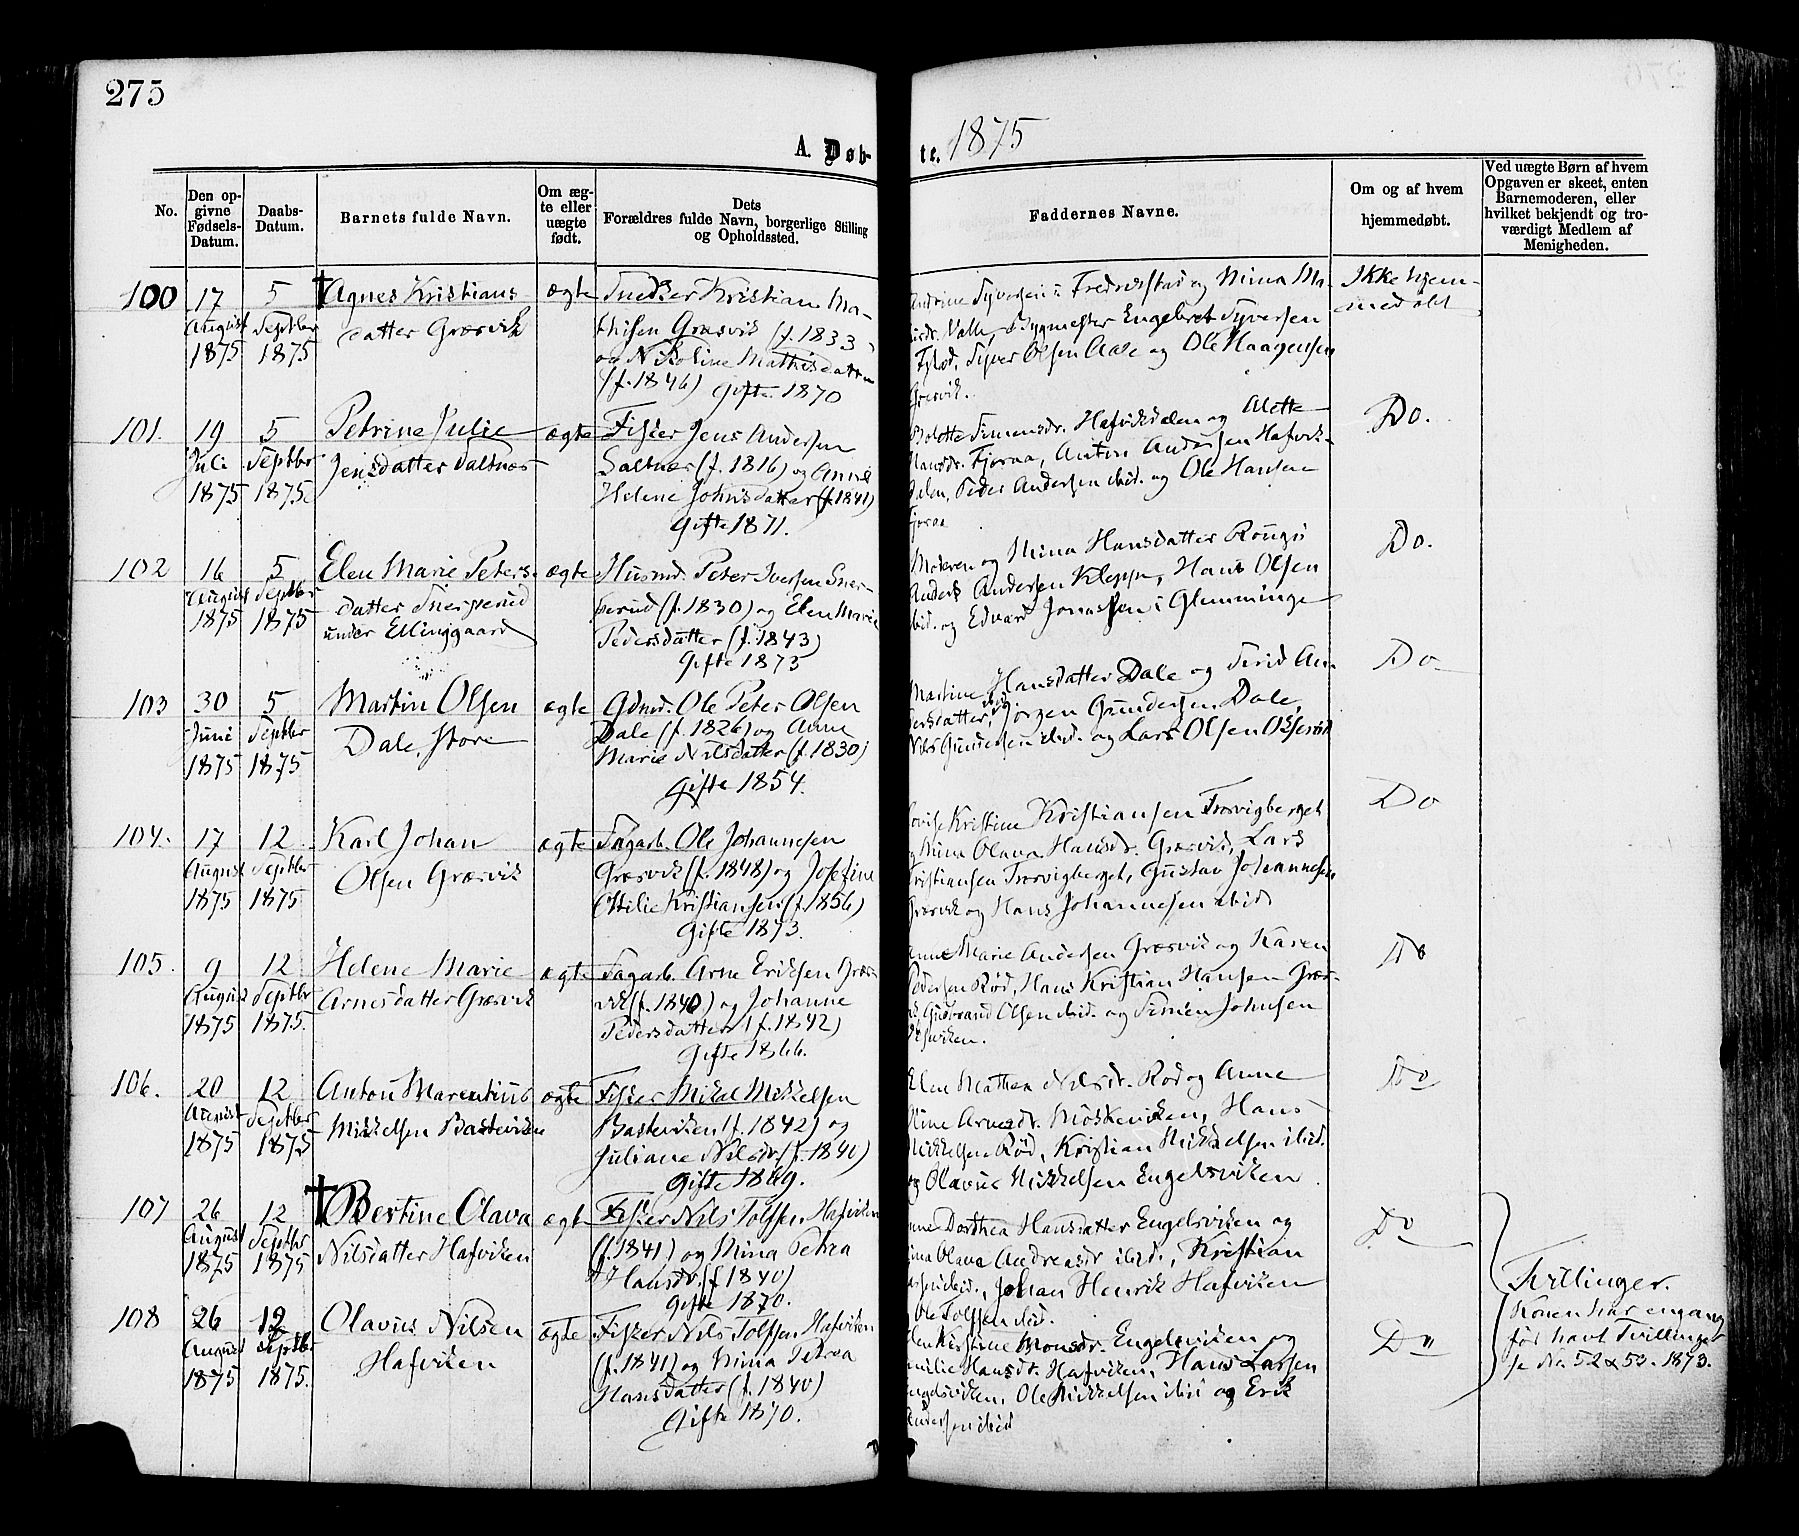 275
A. Døbte. 1875
No.
Den opgivne Fødsels-Datum.
Daabs-Datum.
Barnets fulde Navn.
Om ægte eller uægte født.
Dets Forældres fulde Navn, borgerlige Stilling og Opholdssted.
Faddernes Navne.
Om og af hvem hjemmedøbt.
Ved uægte Børn af hvem Opgaven er skeet, enten Barnemoderen, eller hvilket bekjendt og troværdigt Medlem af Menigheden.
100
17
August
1875
5
Septbr
1875
† Agnes Kristians
datter Græsvik
ægte
Snedker Kristian Ma-
thisen Græsvik (f. 1833)
og Nikoline Mathisdatter
(f. 1846) Gifte 1870
Andrine Syversen i Fredrikstad og Mina Ma-
Valle, Bygmester Engebret Syversen
Syver Olsen Aale og Ole Haagensen
Græsvik.
Ikke hjem-
medøbt
101.
19
Juli
1875
5
Septbr
1875.
Petrine Julie
Jensdatter Saltnæs
ægte
Fisker Jens Andersen
Saltnæs (f. 1816) og Anne
Helene Johnsdatter (f. 1841)
Gifte 1871.
Bolette Simensdr. Hafvikdalen og Alette
Hansdr. Fjeraa, Anton Andersen Hafvik-
dalen, Peder Andersen ibid. og Ole Hansen
Fjeraa
Do.
102
16
August
1875
5
Septbr
1875
Elen Marie Peters-
datter Snerperud
under Ellinggaard
ægte
Husmd. Peter Iversen Sner-
perud (f. 1830) og Elen Marie
Pedersdatter (f. 1843)
Gifte 1873
Moderen og Mina Hansdatter Rougsi
Anders Andersen Kleppe, Hans Olsen
ibid. og Edvard Jonassen i Glemminge
Do.
103
30
Juni
1875
5
Septbr
1875
Martin Olsen
Dale, store
ægte
Gdmd. Ole Peter Olsen
Dale (f. 1826) og Anne
Marie Nilsdatter (f. 1830)
Gifte 1854.
Martine Hansdatter Dale og Terid An-
dersdatter ibid, Jørgen Gundersen Dale,
Nils Gundersen ibid. og Lars Olsen Okserød
Do
104.
17
August
1875
12
Septbr
1875
Karl Johan
Olsen Græsvik
ægte
Sagarb. Ole Johannesen
Græsvik (f. 1848) og Josefine
Ottilie Kristiansen (f. 1856)
Gifte 1873.
Lovise Kristine Kristiansen Trosvigberget
og Mina Olava Hansdr. Græsvik, Lars
Kristiansen Trosvigberget, Gustav Johannesen
Græsvik og Hans Johannesen ibid
Do
105.
9
August
1875
12
Septbr
1875.
Helene Marie
Arnesdatter Græsvik
ægte
Sagarb. Arne Eriksen Græs-
vik (f. 1840) og Johanne
Pedersdatter (f. 1842)
Gifte 1866.
Anne Marie Andersen Græsvik og Karen
Pedersen Rød, Hans Kristian Hansen Græs-
vik, Gudbrand Olsen ibid. og Simen Johnsen
Do
106.
20
August
1875
12
Septbr
1875
Anton Marentius
Mikkelsen Basteviken
ægte
Fisker Mikal Mikkelsen
Basteviken (f. 1842) og
Juliane Nilsdr. (f. 1840)
Gifte 1869.
Elen Mathea Nilsdr. Rød og Anne
Stine Arnesdr. Møskeviken, Hans
Mikkelsen Rød, Kristian Mikkelsen ibid.
og Olavus Mikkelsen Engelsviken
Do
107
26
August
1875
12
Septbr
1875
† Bertine Olava
Nilsdatter Hafviken
ægte
Fisker Nils Tolfsen Hafviken
(f. 1841) og Mina Petra
Hansdr. (f. 1840)
Gifte 1870.
Anne Dorthea Hansdatter Engelsviken og
Mina Olava Andreasdr ibid., Kristian
ibid., Johan Henrik Hafviken
Ole Tolfsen ibid.
Do
Tvillinger.
Konen har engang
før havt Tvillinger
se No. 52 & 53. 1873.
108
26
August
1875
12
Septbr
1875.
Olavus Nilsen
Hafviken
ægte
Fisker Nils Tolfsen Hafviken
(f. 1841) og Mina Petra
Hansdatter (f. 1840)
Gifte 1870.
Elen Kirstine Monsdr. Engelsviken og
Emilie Hansdr. Hafviken, Hans Larsen
Engelsviken, Ole Mikkelsen ibid og Erik
Andersen ibid
Do